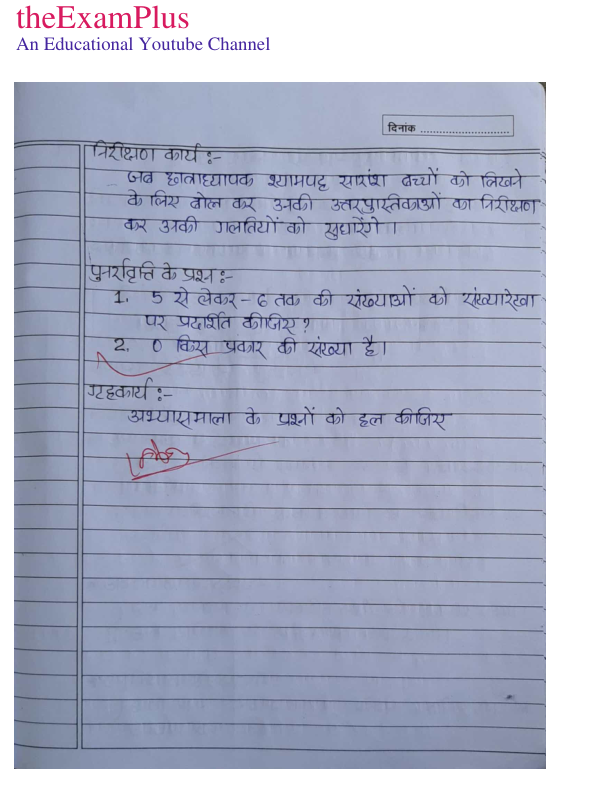 theExamPlus
An Educational Youtube Channel
दिनांक ..............................
निरीक्षण कार्य :-
जब छात्राध्यापक श्यामपट्ट सारांश बच्चों को लिखने
के लिए बोल कर उनकी उत्तरपुस्तिकाओं का निरीक्षण
कर उनकी गलतियों को सुधारेंगे।
पुनरावृत्ति के प्रश्न :-
1. 5 से लेकर - 6 तक की संख्याओं को संख्यारेखा
पर प्रदर्शित कीजिए?
2. 0 किस प्रकार की संख्या है।
गृहकार्य :-
अभ्यासमाला के प्रश्नों को हल कीजिए